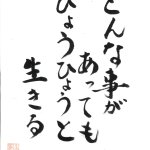 どんな事が
あっても
ひょうひょうと
生きる